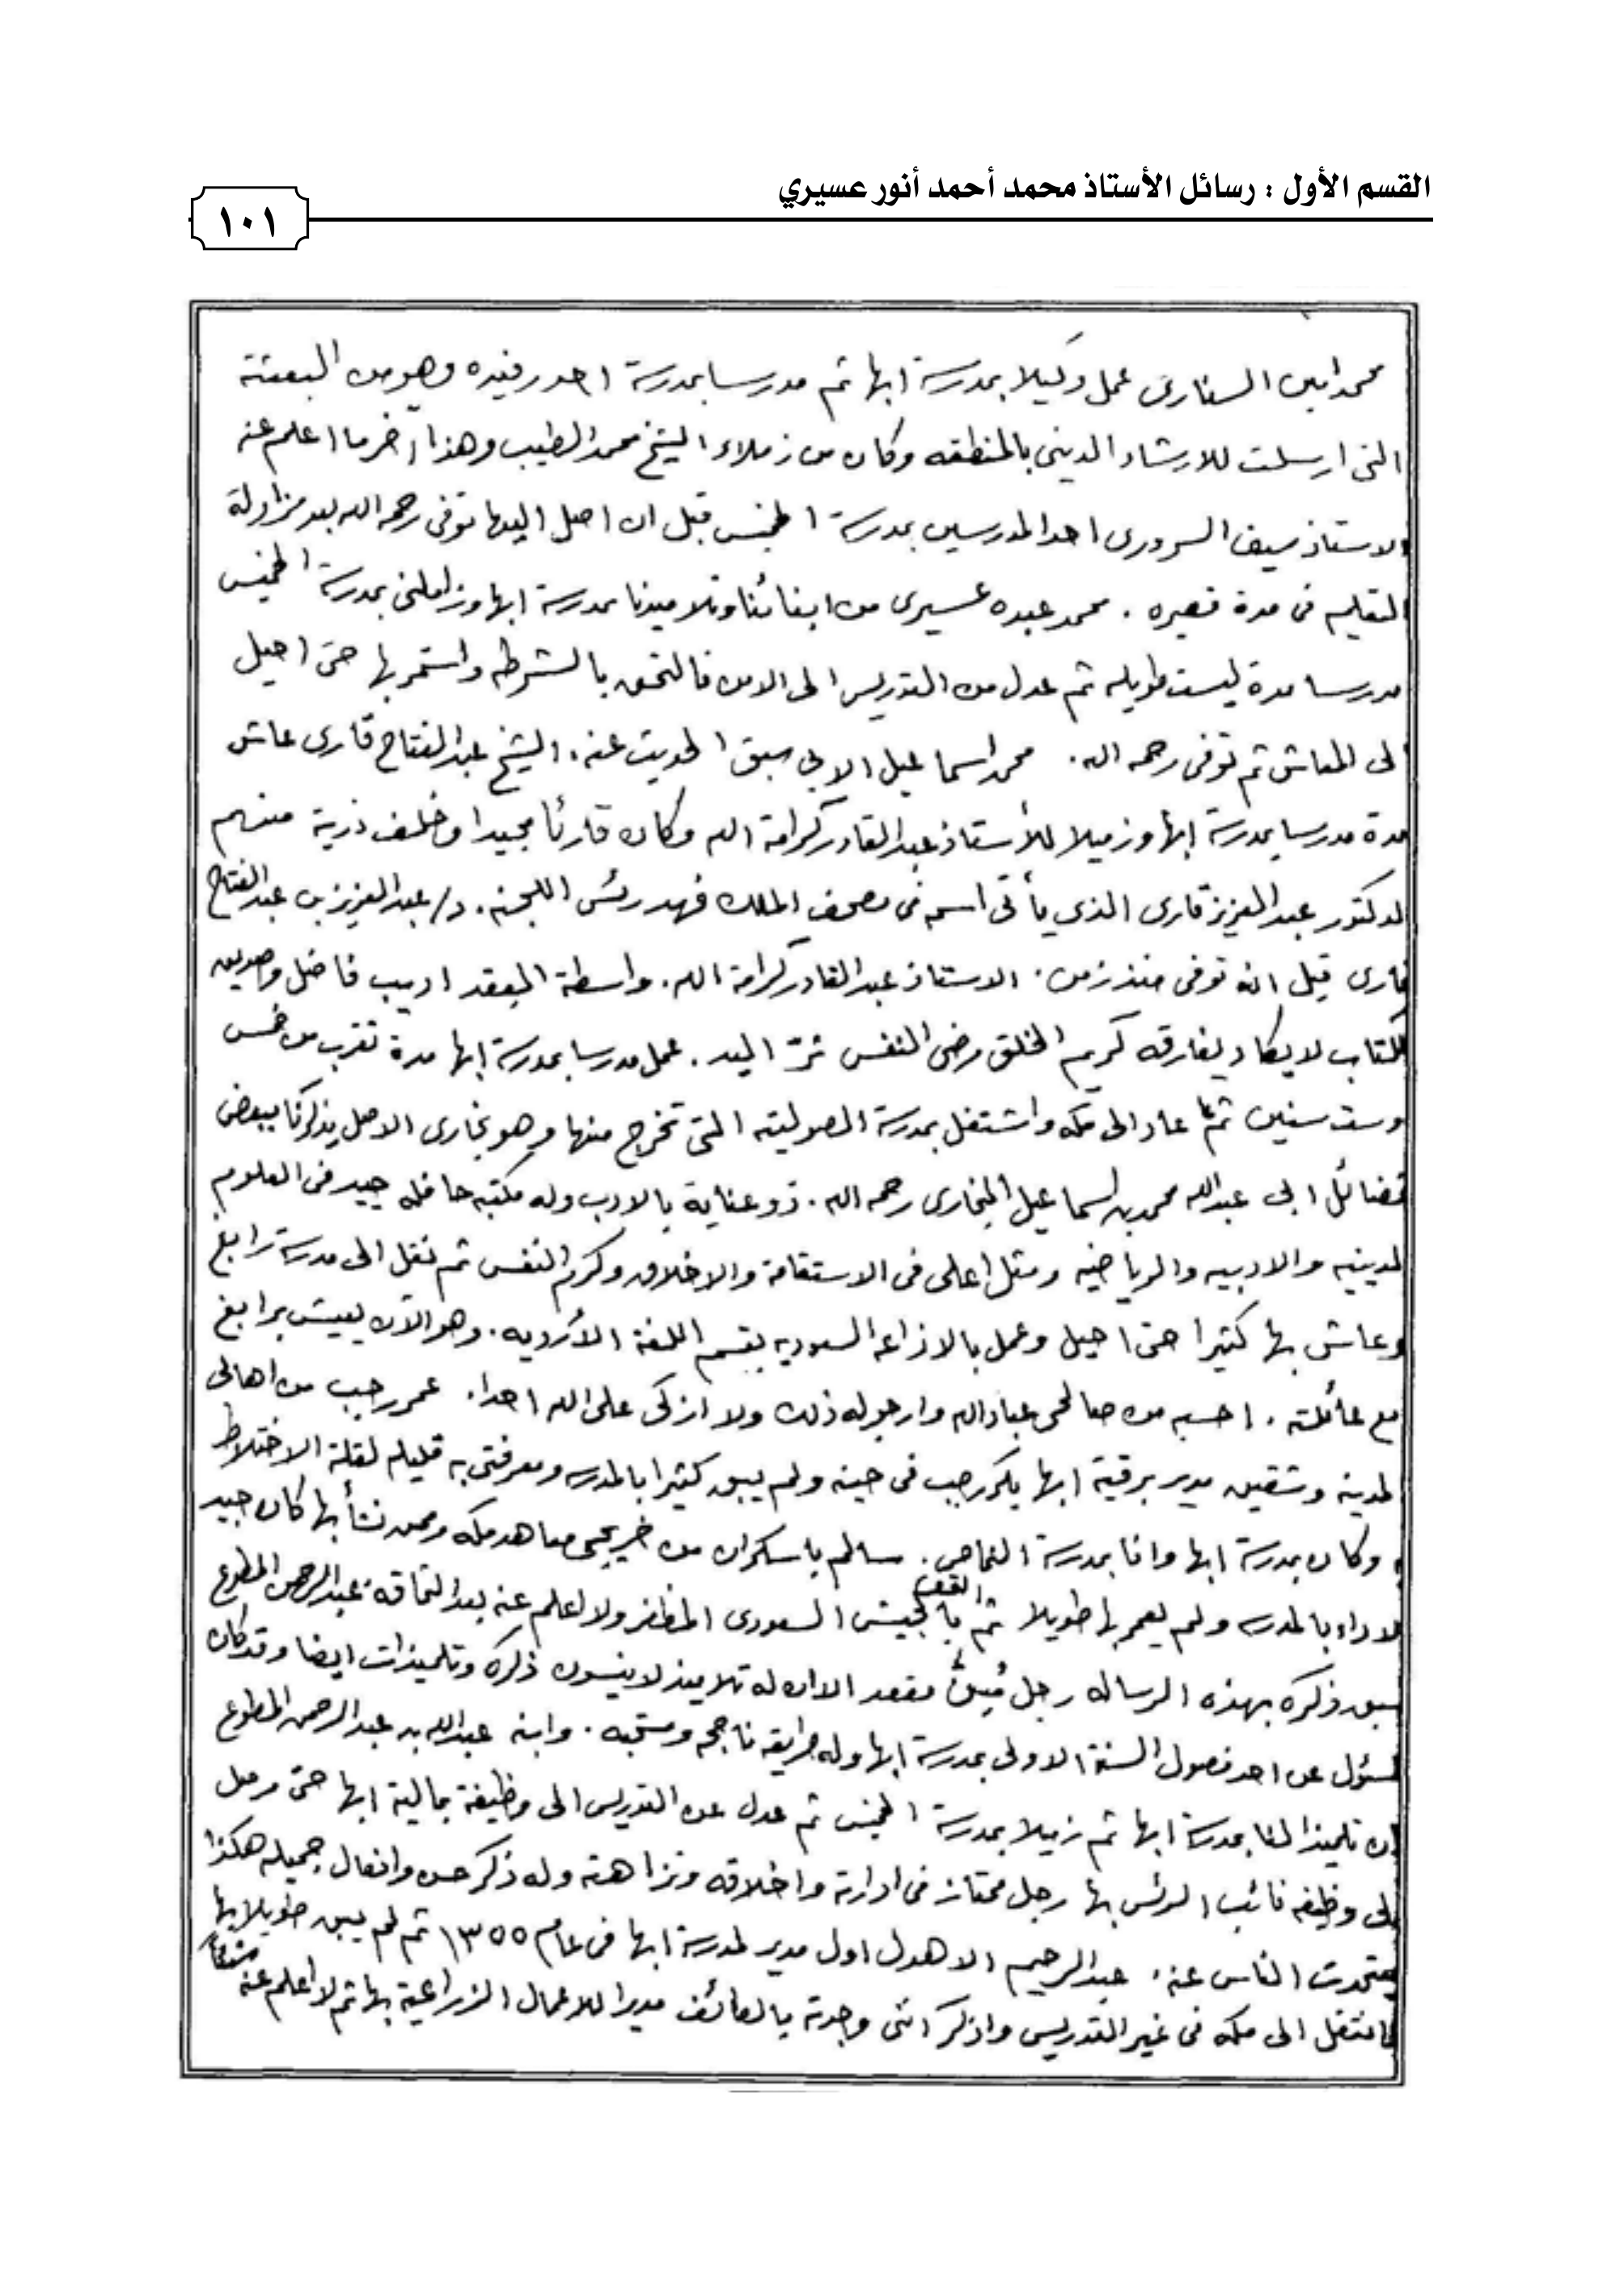 القسم الأول : رسائل الأستاذ محمد أحمد أنور عسيري
١٠١
محمد امين السنارى عمل وكيلا بمدرسة ابها ثم مدرسا بمدرسة احد رفيده وهو من البعثة
التى ارسلت للارشاد الدينى بالمنطقه وكان من زملاء الشيخ محمد الطيب وهذا آخر ما اعلم عنه
الاستاذ سيف السرورى احد المدرسين بمدرسة الخميس قبل ان اصل اليها توفى رحمه الله بعد مزاولة
التعليم فى مدة قصيره . محمد عبده عسيرى من ابنائنا وتلاميذنا بمدرسة ابها وزاملنى بمدرسة الخميس
مدرسا مدة ليست طويله ثم عدل من التدريس الى الامن فالتحق بالشرطه واستمر بها حتى احيل
الى المعاش ثم توفى رحمه الله . محمد اسماعيل الابي سبق الحديث عنه . الشيخ عبدالفتاح قارى عاش
مدة مدرسا بمدرسة ابها وزميلا للأستاذ عبدالقادر كرامة الله وكان قارئا مجيدا وخلف ذرية منهم
الدكتور عبدالعزيز قارى الذي يأتى اسمه فى مصحف الملك فهد رئس اللجنه . د/ عبدالعزيز بن عبدالفتاح
قارى قيل انه توفى منذ زمن . الاستاذ عبدالقادر كرامة الله . واسطة العقد اديب فاضل وصديق
للكتاب لا يكاد يفارقه كريم الخلق رضى النفس ثرّ اليد . عمل مدرسا بمدرسة ابها مدة تقرب من خمس
وست سنين ثم عاد الى مكه واشتغل بمدرسة الصولتيه التى تخرج منها وهو بخارى الاصل يذكرنا ببعض
فضائل ابى عبدالله محمد بن اسماعيل البخارى رحمه الله . ذو عناية بالادب وله مكتبه حافله جيد فى العلوم
الدينيه والادبيه والرياضيه ومثل اعلى فى الاستقامة والاخلاق وكرم النفس ثم نقل الى مدرسة رابغ
وعاش بها كثيرا حتى احيل وعمل بالاذاعه السعوديه بقسم اللغة الأرديه . وهو الآن يعيش برابغ
مع عائلته . احسبه من صالحى عباد الله وارجو له ذلك ولا ازكى على الله احدا . عمر رجب من اهالى
المدينه وشقيق مدير برقية ابها بكر رجب فى حينه ولم يبق كثيرا بالمدرسه ومعرفتى به قليله لقلة الاختلاط
وكان بمدرسة ابها وانا بمدرسة النماص . سالم باسكران من خريجى معاهد مكه وممن نشأ بها كان جيد
الاداء بالمدرسه ولم يعمر بها طويلا ثم التحق بالجيش السعودى المظفر ولا اعلم عنه بعد التحاقه . عبدالرحمن المطوع
سبق ذكره بهذه الرساله رجل مقعد الا ان له تلاميذ لا ينسون ذكره وتلميذات ايضا وقد كان
مسئول عن احد فصول السنة الاولى بمدرسة ابها وله طريقه ناجحه ومحببه . وابنه عبدالله بن عبدالرحمن المطوع
كان تلميذا لنا بمدرسة ابها ثم زميلا بمدرسة الخميس ثم عدل عن التدريس الى وظيفة بمالية ابها حتى وصل
الى وظيفه نائب الرئس بها رجل ممتاز فى ادارته واخلاقه ونزاهته وله ذكر حسن وافعال جميله هكذا
يتحدث الناس عنه . عبدالرحيم الاهدل اول مدير لمدرسة ابها فى عام ١٣٥٥ ثم لم يبق طويلا بها
فانتقل الى مكه فى غير التدريس واذكر اننى وجدته بالطائف مديرا للاعمال الزراعية بها ثم لا اعلم عنه شيئا